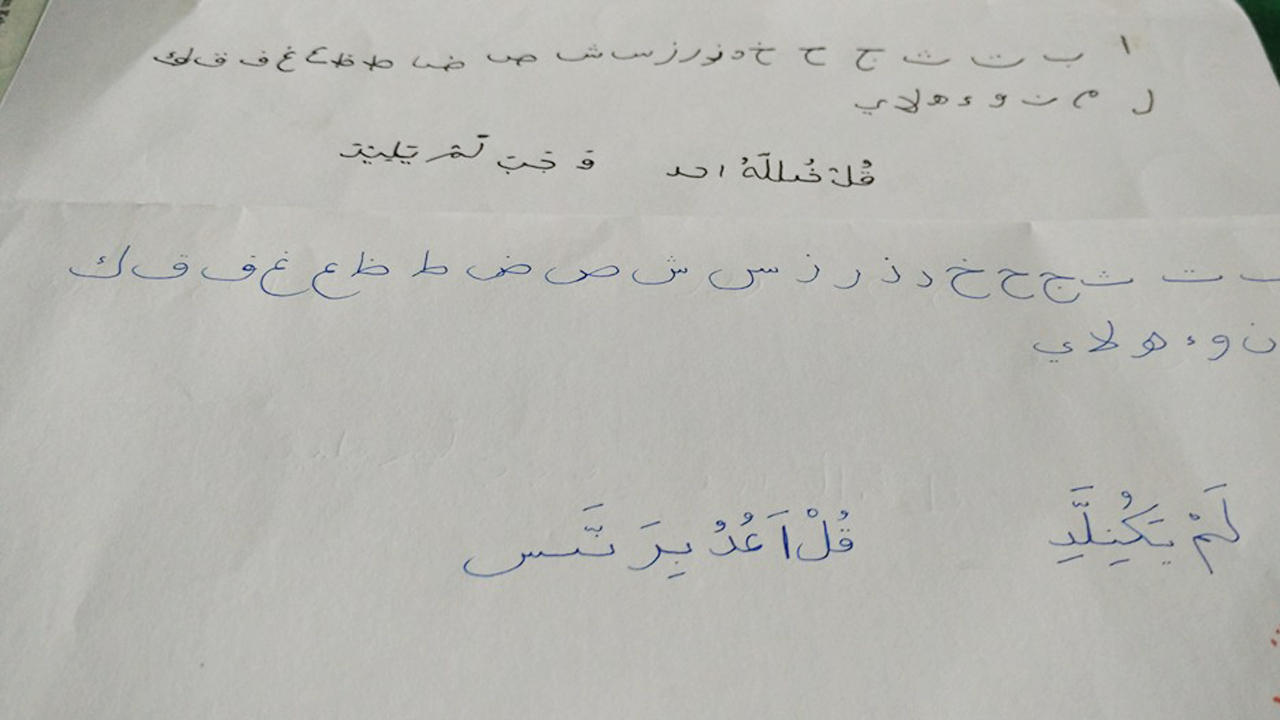 ا ب ت ث ج ح خ د ذ ر ز س ش ص ض ط ظ ع غ ف ق ك
ل م ن و ء ه لا ي
قُلْ خُىللَّهُ احد
ب ت ث ج ح خ د ذ ر ز س ش ص ض ط ظ ع غ ف ق ك
ن و ء ه لا ي
لَمْ يَكُنِلَّدِ قُلْ اَعُدُ بِرَ نَّىس